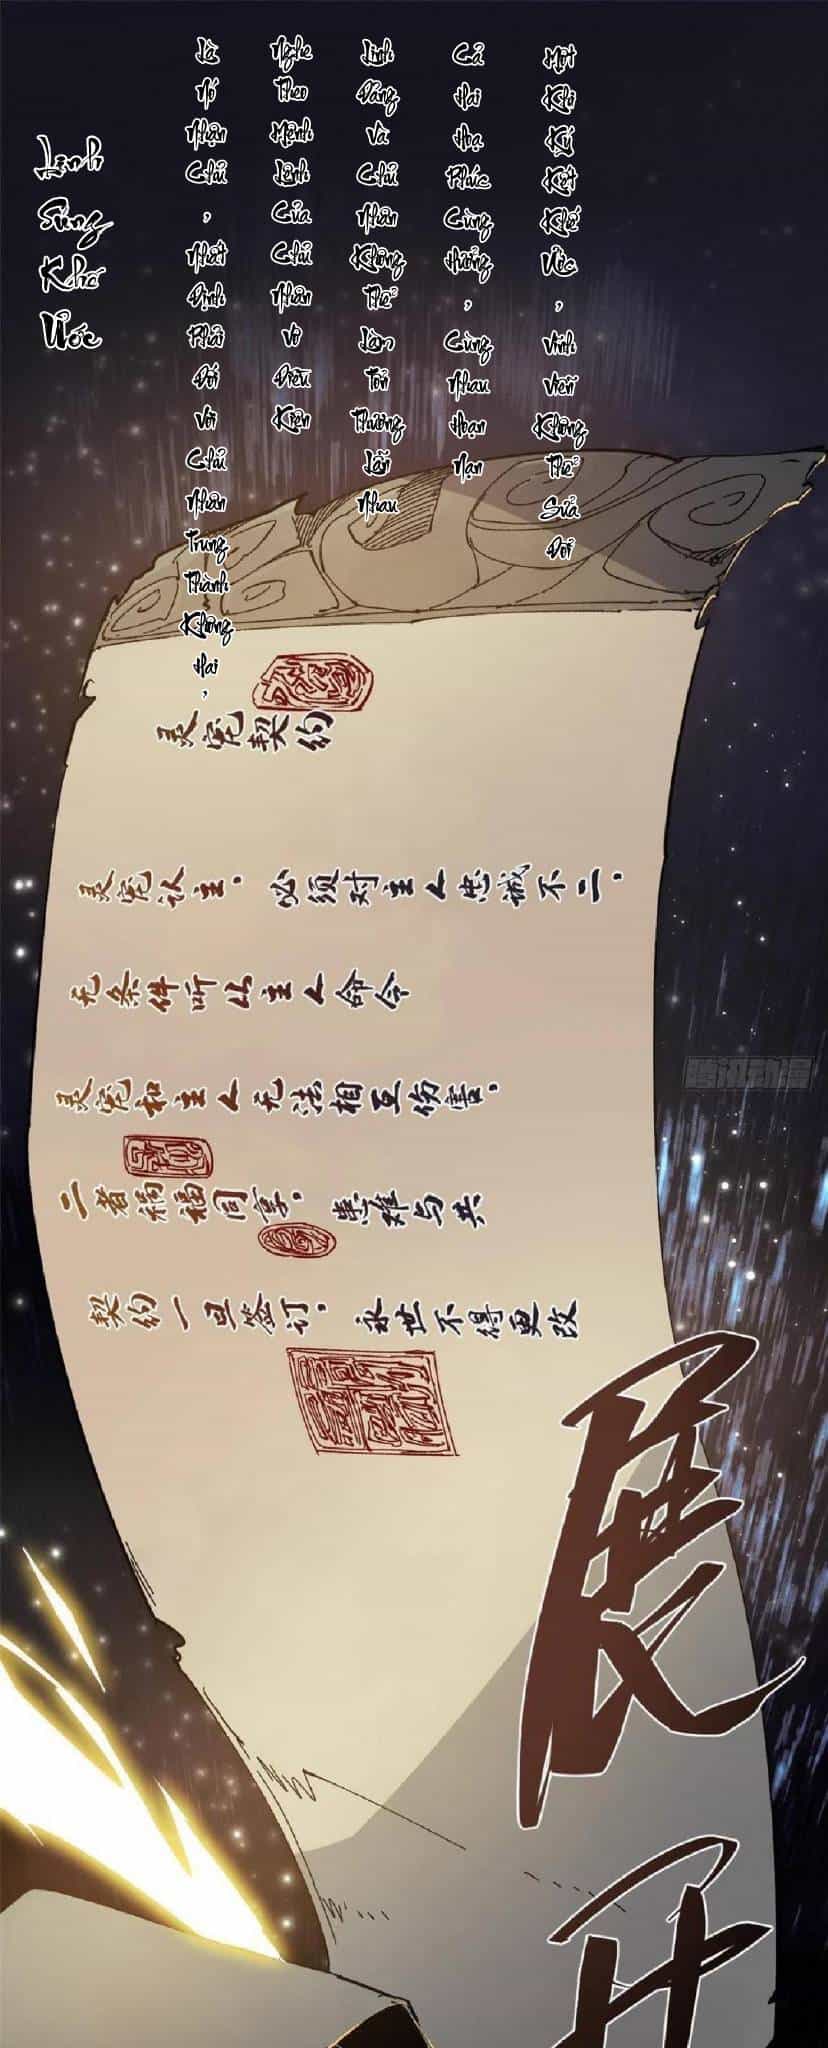 Linh Sủng Khế Ước
Là Nó Nhận Chủ, Nhất Định Phải Đối Với Chủ Nhân Trung Thành Không Hai,
Nghe Theo Mệnh Lệnh Của Chủ Nhân Vô Điều Kiện
Và Chủ Nhân Không Thể Làm Tổn Thương Lẫn Nhau
Cả Hai Họa Phúc Cùng Hưởng, Cùng Nhau Hoạn Nạn
Một Khi Ký Kết Khế Ước, Vĩnh Viễn Không Thể Sửa Đổi
灵宠契约
灵宠认主，必须对主人忠诚不二，
无条件听从主人命令
灵宠和主人无法相互伤害，
二者祸福同享，患难与共
契约一旦签订，永世不得更改
腾讯动漫
展开